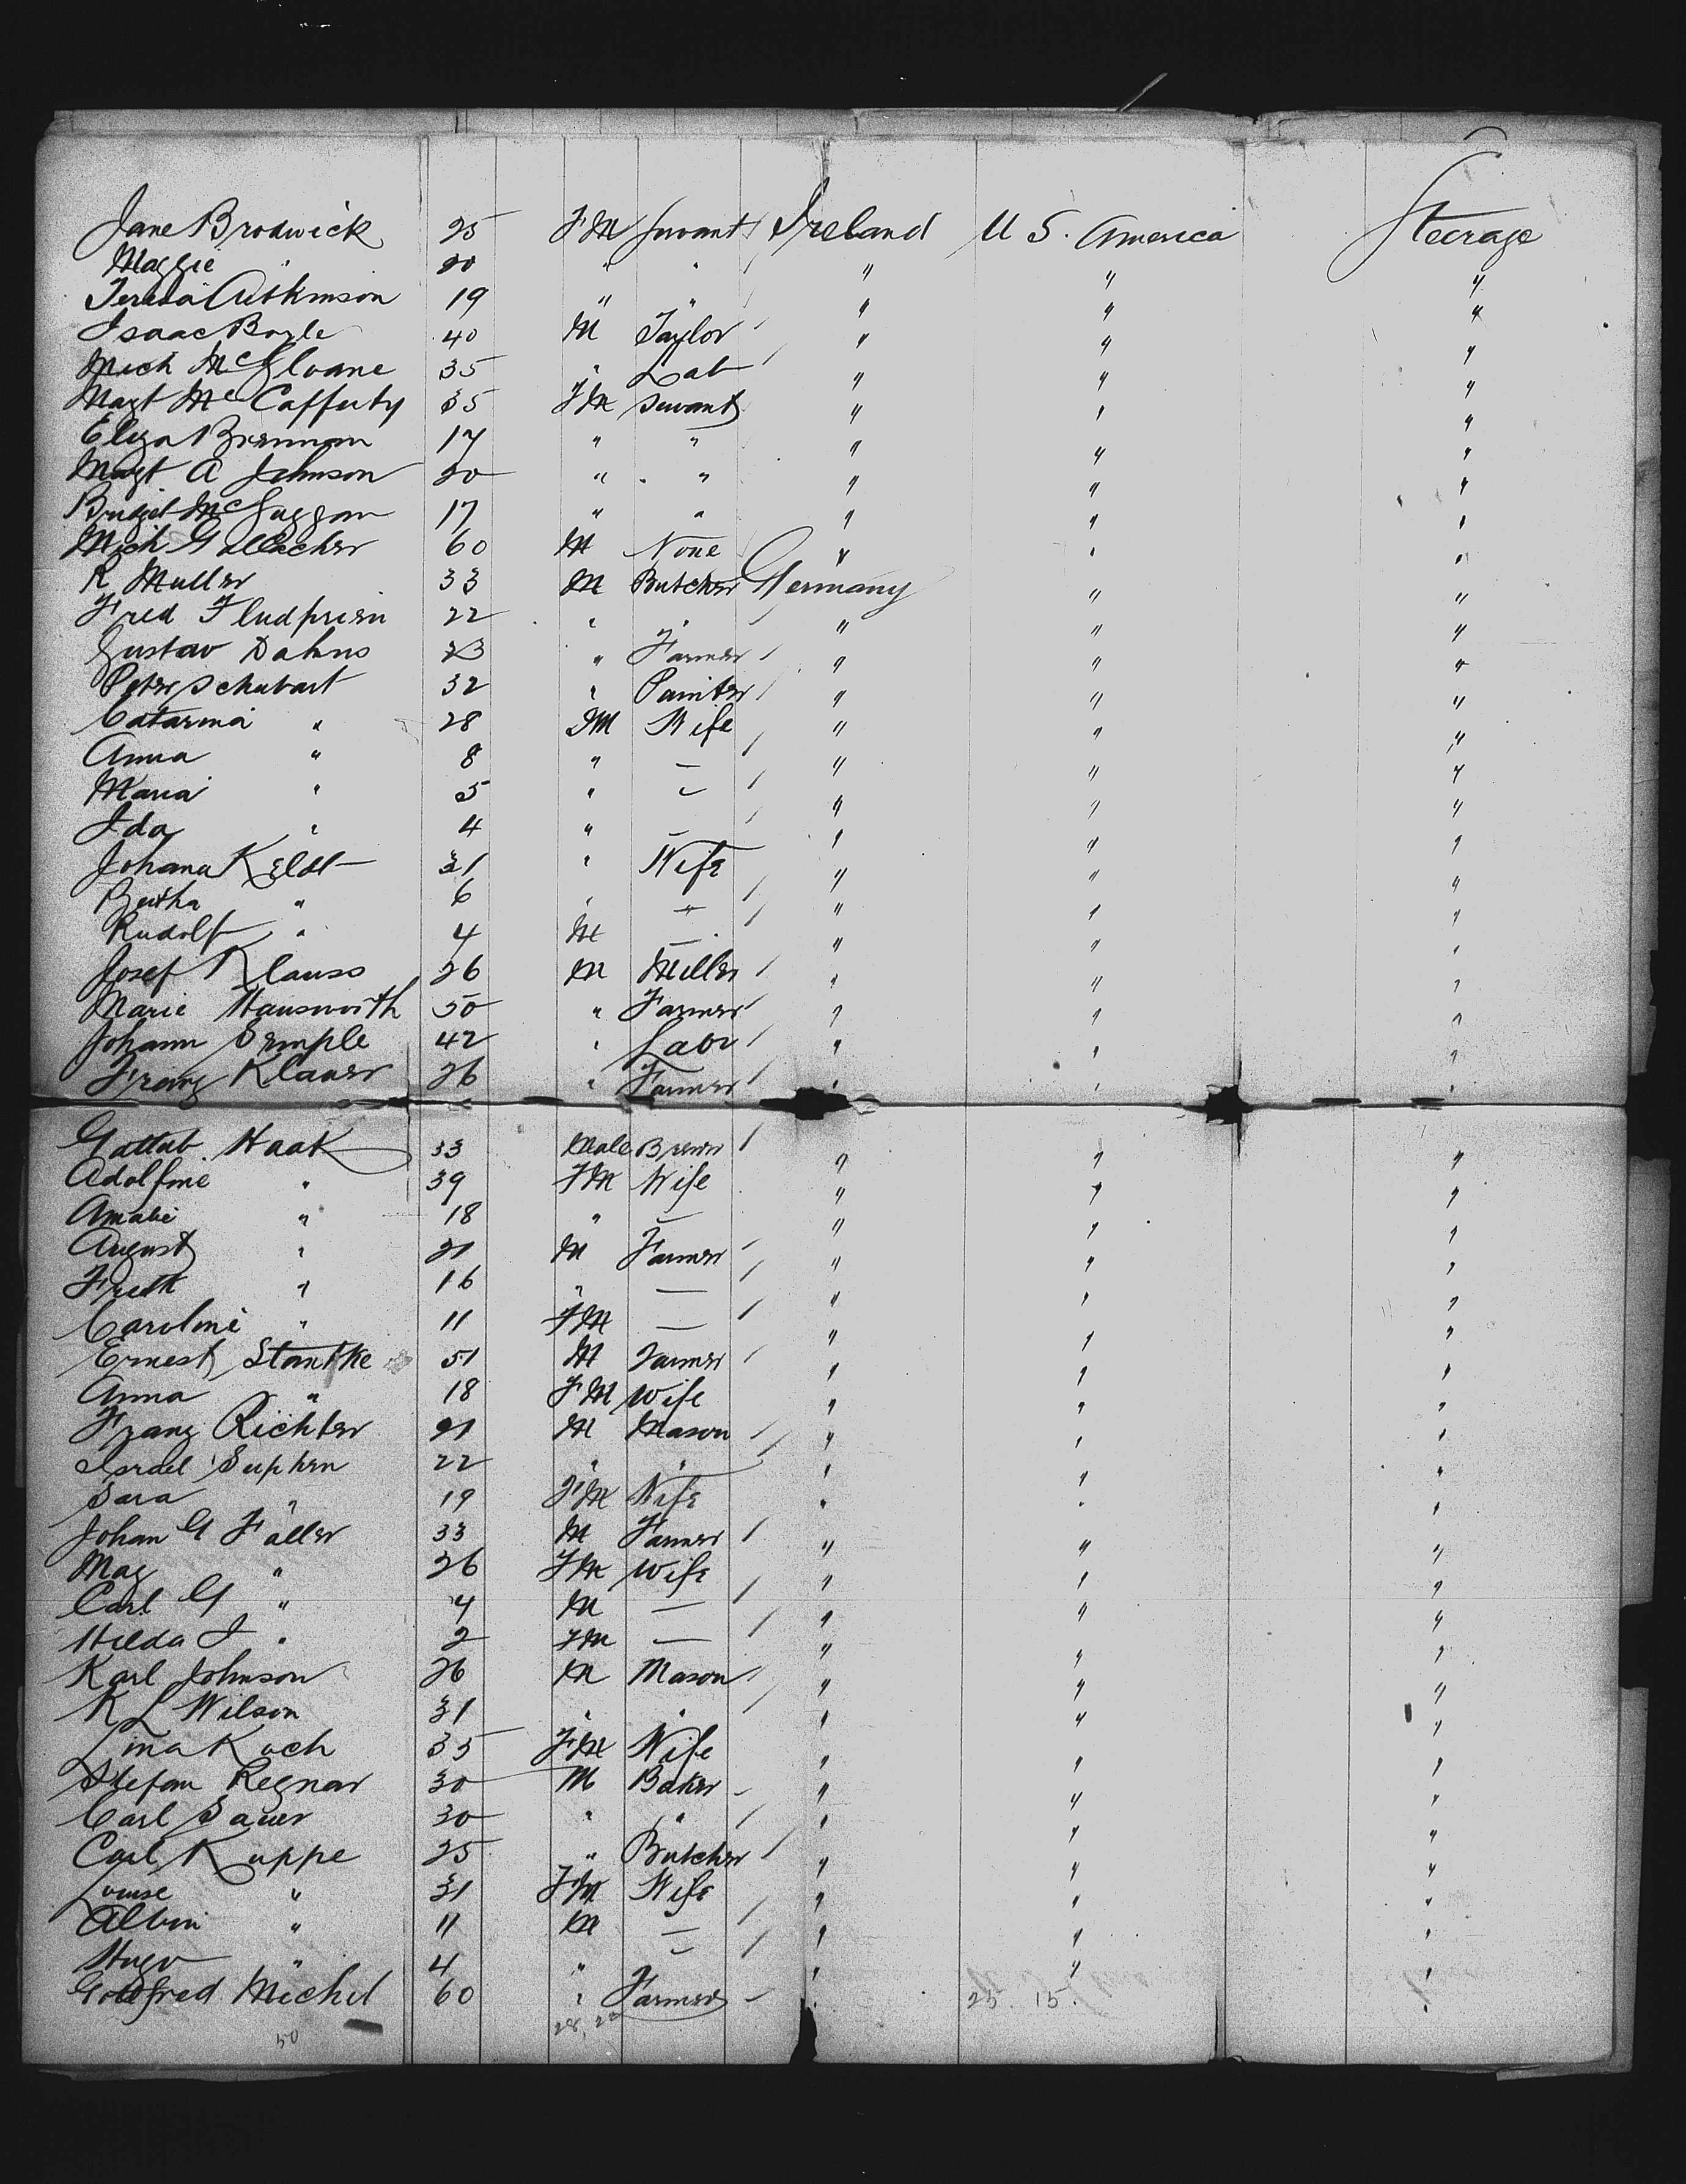 Jane Brodwick 25 FM Servant Ireland U S. America Steerage
Maggie " 20 " " " " "
Teresa Aitkinson 19 " " " " "
Isaac Boyle 40 M Taylor " " "
Mich McGloane 35 " Lab " " "
Magt McCafferty 35 FM Servant " " "
Eliza Brennan 17 " " " " "
Magt A Johnson 20 " " " " "
Bridget McGaggan 17 " " " " "
Mich Gallacher 60 M None " " "
R Muller 33 M Butcher Germany " "
Fred 22 " " " " "
Gustav Dahns 23 " Farmer " " "
Peter Schubart 32 " Painter " " "
Catarina " 28 FM Wife " " "
Anna " 8 " — " " "
Maria " 5 " — " " "
Ida " 4 " — " " "
Johana Keldt 31 " Wife " " "
Bertha " 6 " — " " "
Rudolf " 4 M — " " "
Josef Klauss 26 M Miller " " "
Marie Hausworth 50 " Farmer " " "
Johann Semple 42 " Labr " " "
Franz Klauer 26 " Farmer " " "
Gottlieb Haak 33 Male Brewer " " "
Adolfine " 39 FM Wife " " "
Amalie " 18 " — " " "
August " 21 M Farmer " " "
Fredk " 16 " — " " "
Caroline " 11 FM — " " "
Ernest Stantke 51 M Farmer " " "
Anna " 18 FM Wife " " "
Franz Richter 21 M Mason " " "
Israel 22 " " " " "
Sara " 19 FM Wife " " "
Johan G Faller 33 M Farmer " " "
Mag " 26 FM Wife " " "
Carl G " 4 M — " " "
Hilda J " 2 FM — " " "
Karl Johnson 26 M Mason " " "
K L Wilson 31 " " " " "
Lina Koch 35 FM Wife " " "
Stefan Regnar 30 M Baker " " "
Carl Sauer 30 " " " " "
Carl Kuppe 25 " Butcher " " "
Louise " 31 FM Wife " " "
Albin " 11 M — " " "
Hugo " 4 " — " " "
Gottfred Michel 60 " Farmer " "
25. 15.
50